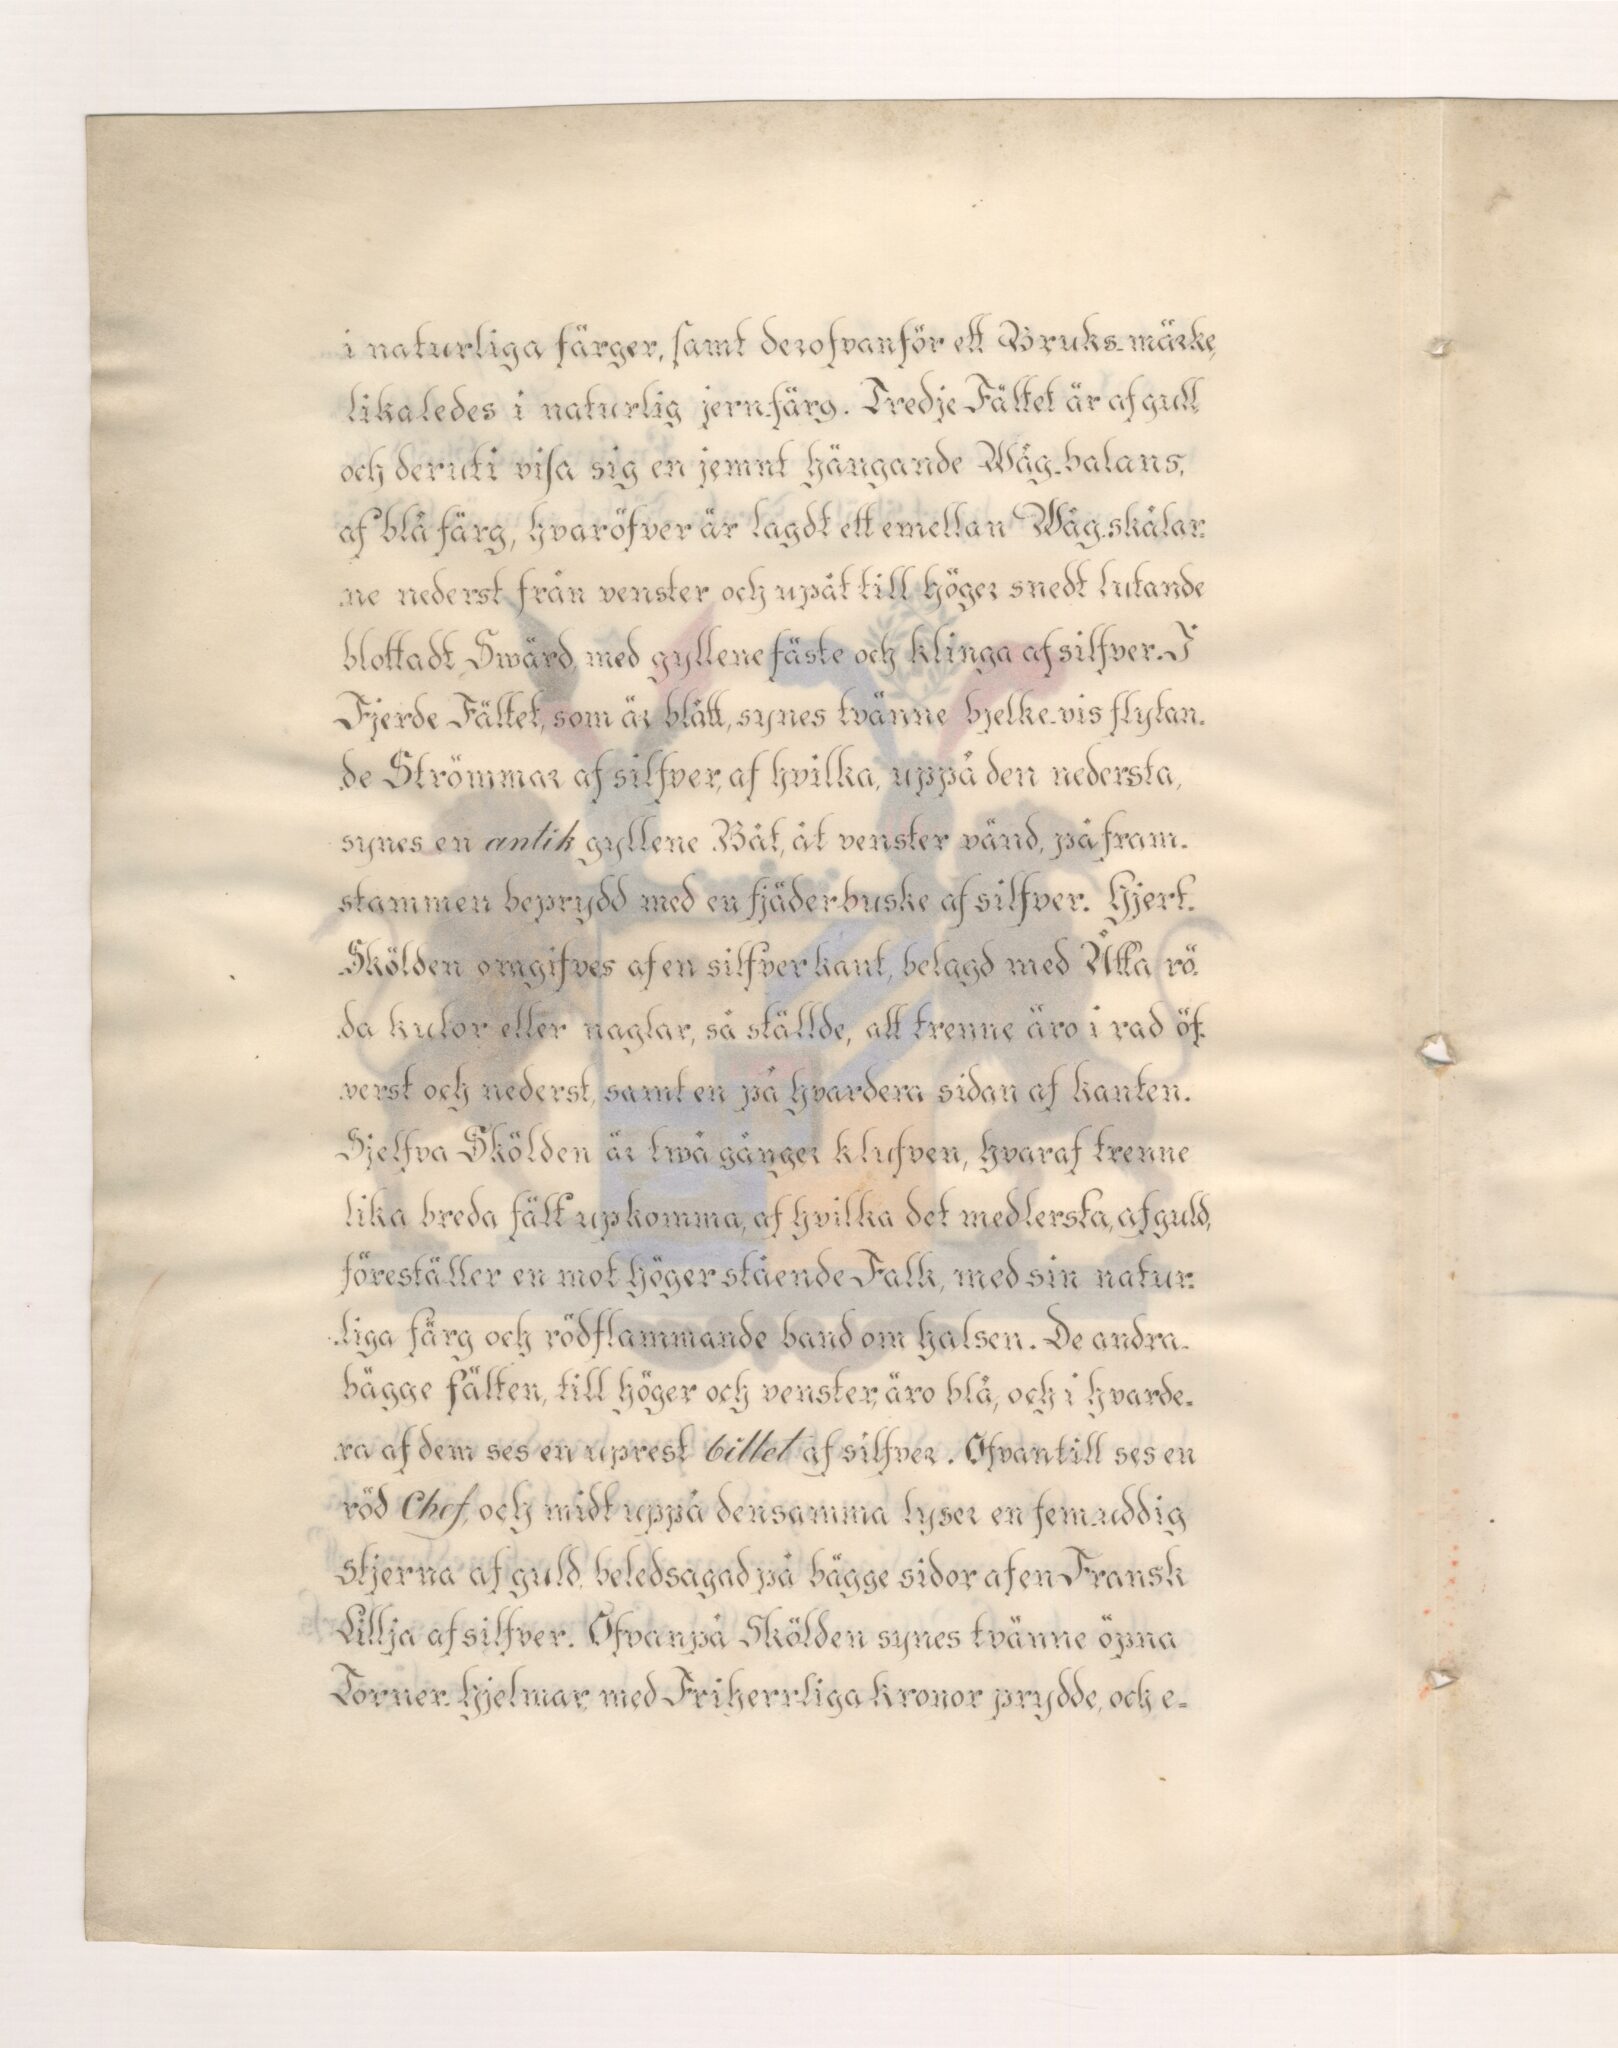 i naturliga färger, samt derofvanför ett Bruks-märke,
likaledes i naturlig jern-färg. Tredje Fältet är af gull
och deruti visa sig en jemnt hängande Wåg-balans,
af blå färg, hvaröfver är lagdt ett emellan Wåg-skålar-
ne nederst från venster och upåt till höger snedt lutande
blottadt Swärd, med gyllene fäste och klinga af silfver. I
Fjerde Fältet, som är blått, synes tvänne bjelke-vis flytan-
de Strömmar af silfver, af hvilka, uppå den nedersta,
synes en antik gyllene Båt, åt venster vänd, på fram-
stammen beprydd med en fjäderbuske af silfver. Hjert-
Skölden omgifves af en silfverkant, belagd med Åtta rö-
da kulor eller naglar, så ställde, att trenne äro i rad öf-
verst och nederst, samt en på hvardera sidan af kanten.
Sjelfva Skölden är twå gånger klufven, hvaraf trenne
lika breda fält upkomma, af hvilka det medlersta, af guld,
föreställer en mot höger stående Falk, med sin natur-
liga färg och rödflammande band om halsen. De andra
bägge fälten, till höger och venster, äro blå, och i hvarde-
ra af dem ses en uprest billet af silfver. Ofvantill ses en
röd Chef, och midt uppå densamma lyser en femuddig
stjerna af guld, beledsagad på bägge sidor af en Fransk
Lillja af silfver. Ofvanpå Skölden synes tvänne öpna
Torner-hjelmar, med Friherrliga kronor prydde, och e-